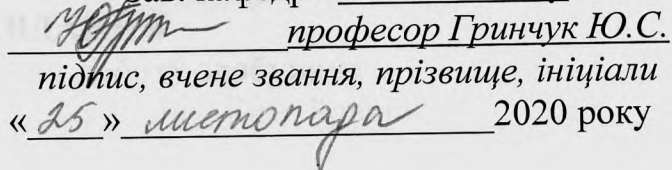 професор Гринчук Ю.С.
підпис, вчене звання, прізвище, ініціали
«25» листопада 2020 року